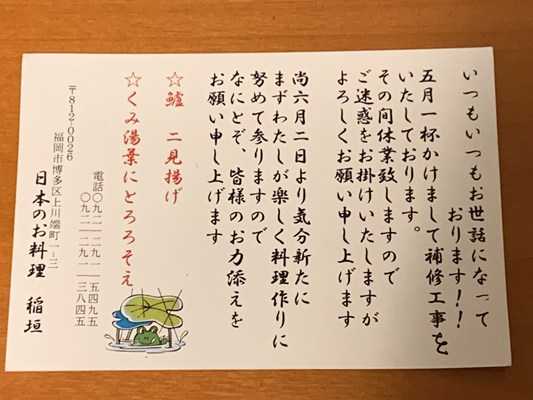 いつもいつもお世話になって
おります!!
五月一杯かけまして補修工事を
いたしております。
その間休業致しますので
ご迷惑をお掛けいたしますが
よろしくお願い申し上げます
尚六月二日より気分新たに
まずわたしが楽しく料理作りに
努めて参りますので
なにとぞ、皆様のお力添えを
お願い申し上げます
☆鱧 二見揚げ
☆くみ湯葉にとろろそえ
電話〇九二-二九一-五四九五
〇九二-二九一-三八四五
〒812-0026
福岡市博多区上川端町一-三
日本のお料理 稲垣